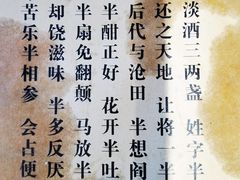 淡酒三两盏 姓字半
还之天地 让将一半
后代与沧田 半想阎
半酣正好 花开半吐
半扇免翻颠 马放半
却饶滋味 半多反厌
苦乐半相参 会占便